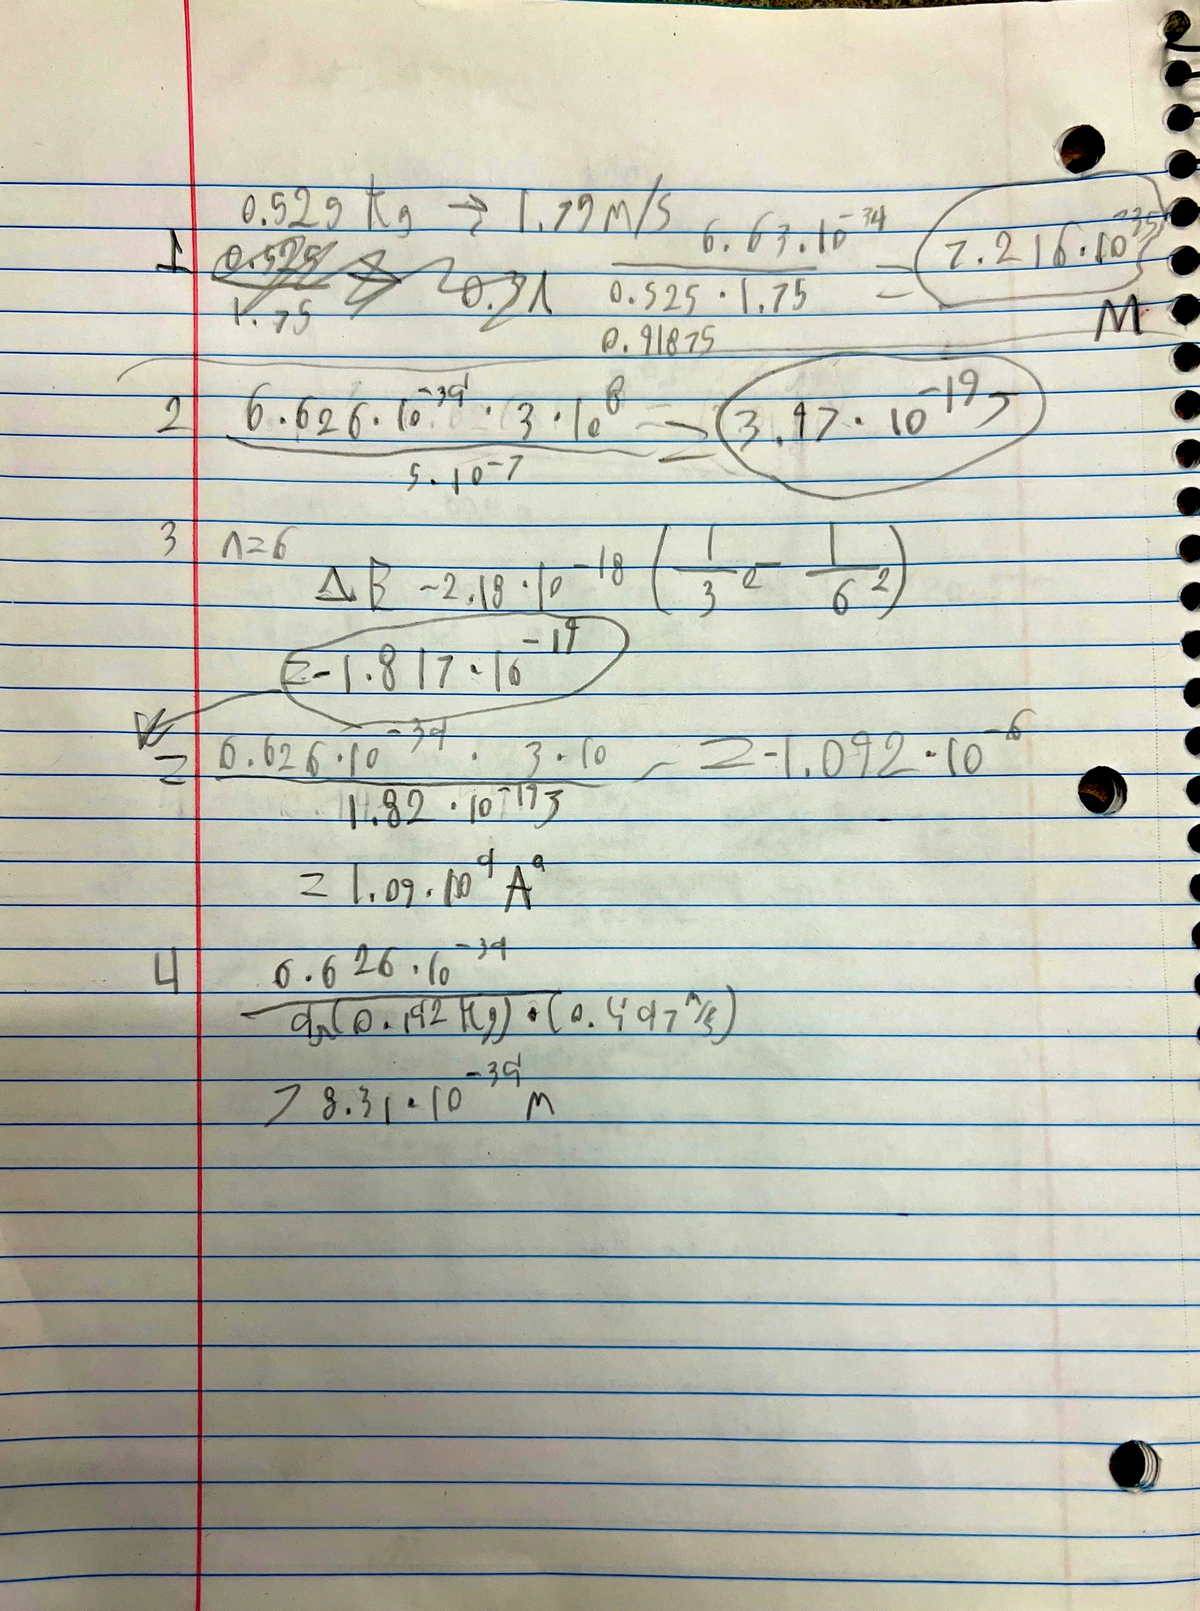 0.529 Kg → 1.79 M/S
1 6.63·10^-34 / 0.525·1.75 = 7.216·10^-35 M
0.91875
2 6.626·10^-34 · 3·10^8 / 5·10^-7 = 3.97·10^-19 J
3 n=6
ΔE -2.18·10^-18 (1/3^2 - 1/6^2)
=-1.817·10^-19
= 6.626·10^-34 · 3·10 / 1.82·10^-19 J = -1.092·10^-6
= 1.09·10^4 A°
4 6.626·10^-34
(0.192 Kg) · (0.497 m/s)
8.31·10^-34 M